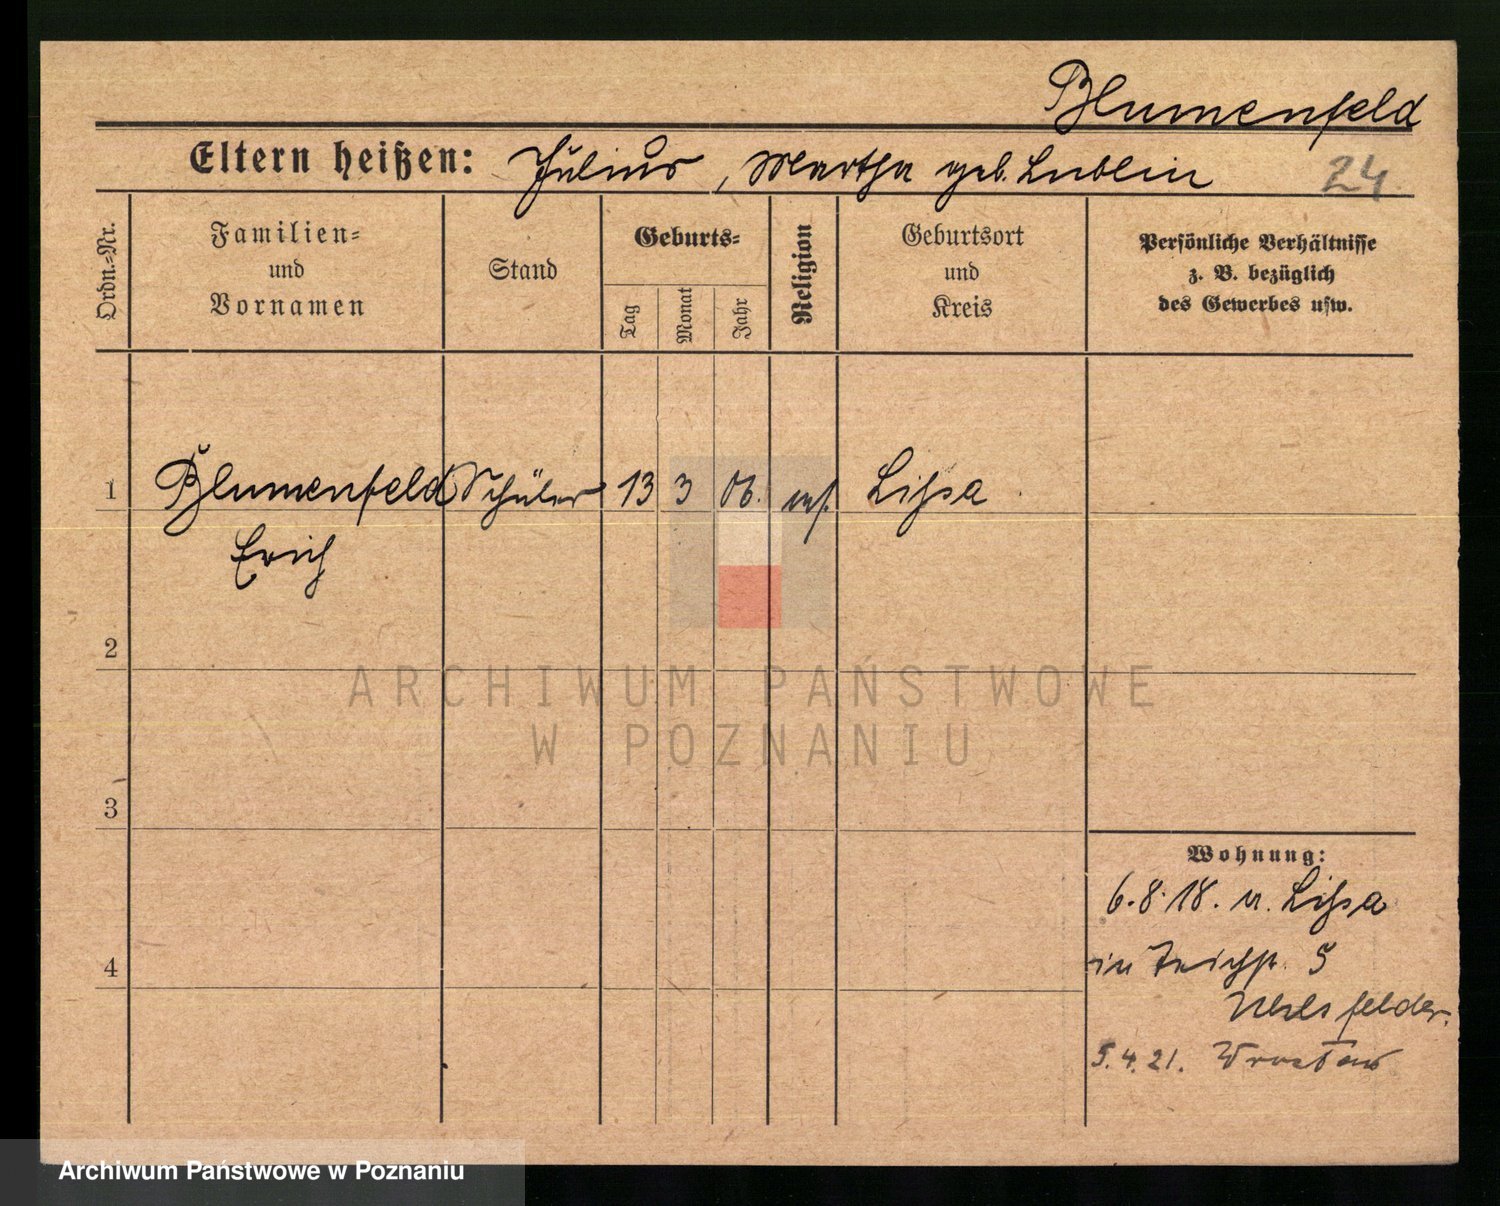 Blumenfeld
Eltern heißen: Julius, Martha geb. Lublin
24
Ordn.=Nr.
Familien=
und
Vornamen
Stand
Geburts=
Tag
Monat
Jahr
Religion
Geburtsort
und
Kreis
Persönliche Verhältnisse
z. B. bezüglich
des Gewerbes usw.
1 Blumenfeld Schüler 13 3 06. mos. Lissa
Erich
2
3
4
Wohnung:
6.8.18. v. Lissa
in Teichstr. 5
felder.
5.4.21.
ARCHIWUM PAŃSTWOWE
W POZNANIU
Archiwum Państwowe w Poznaniu